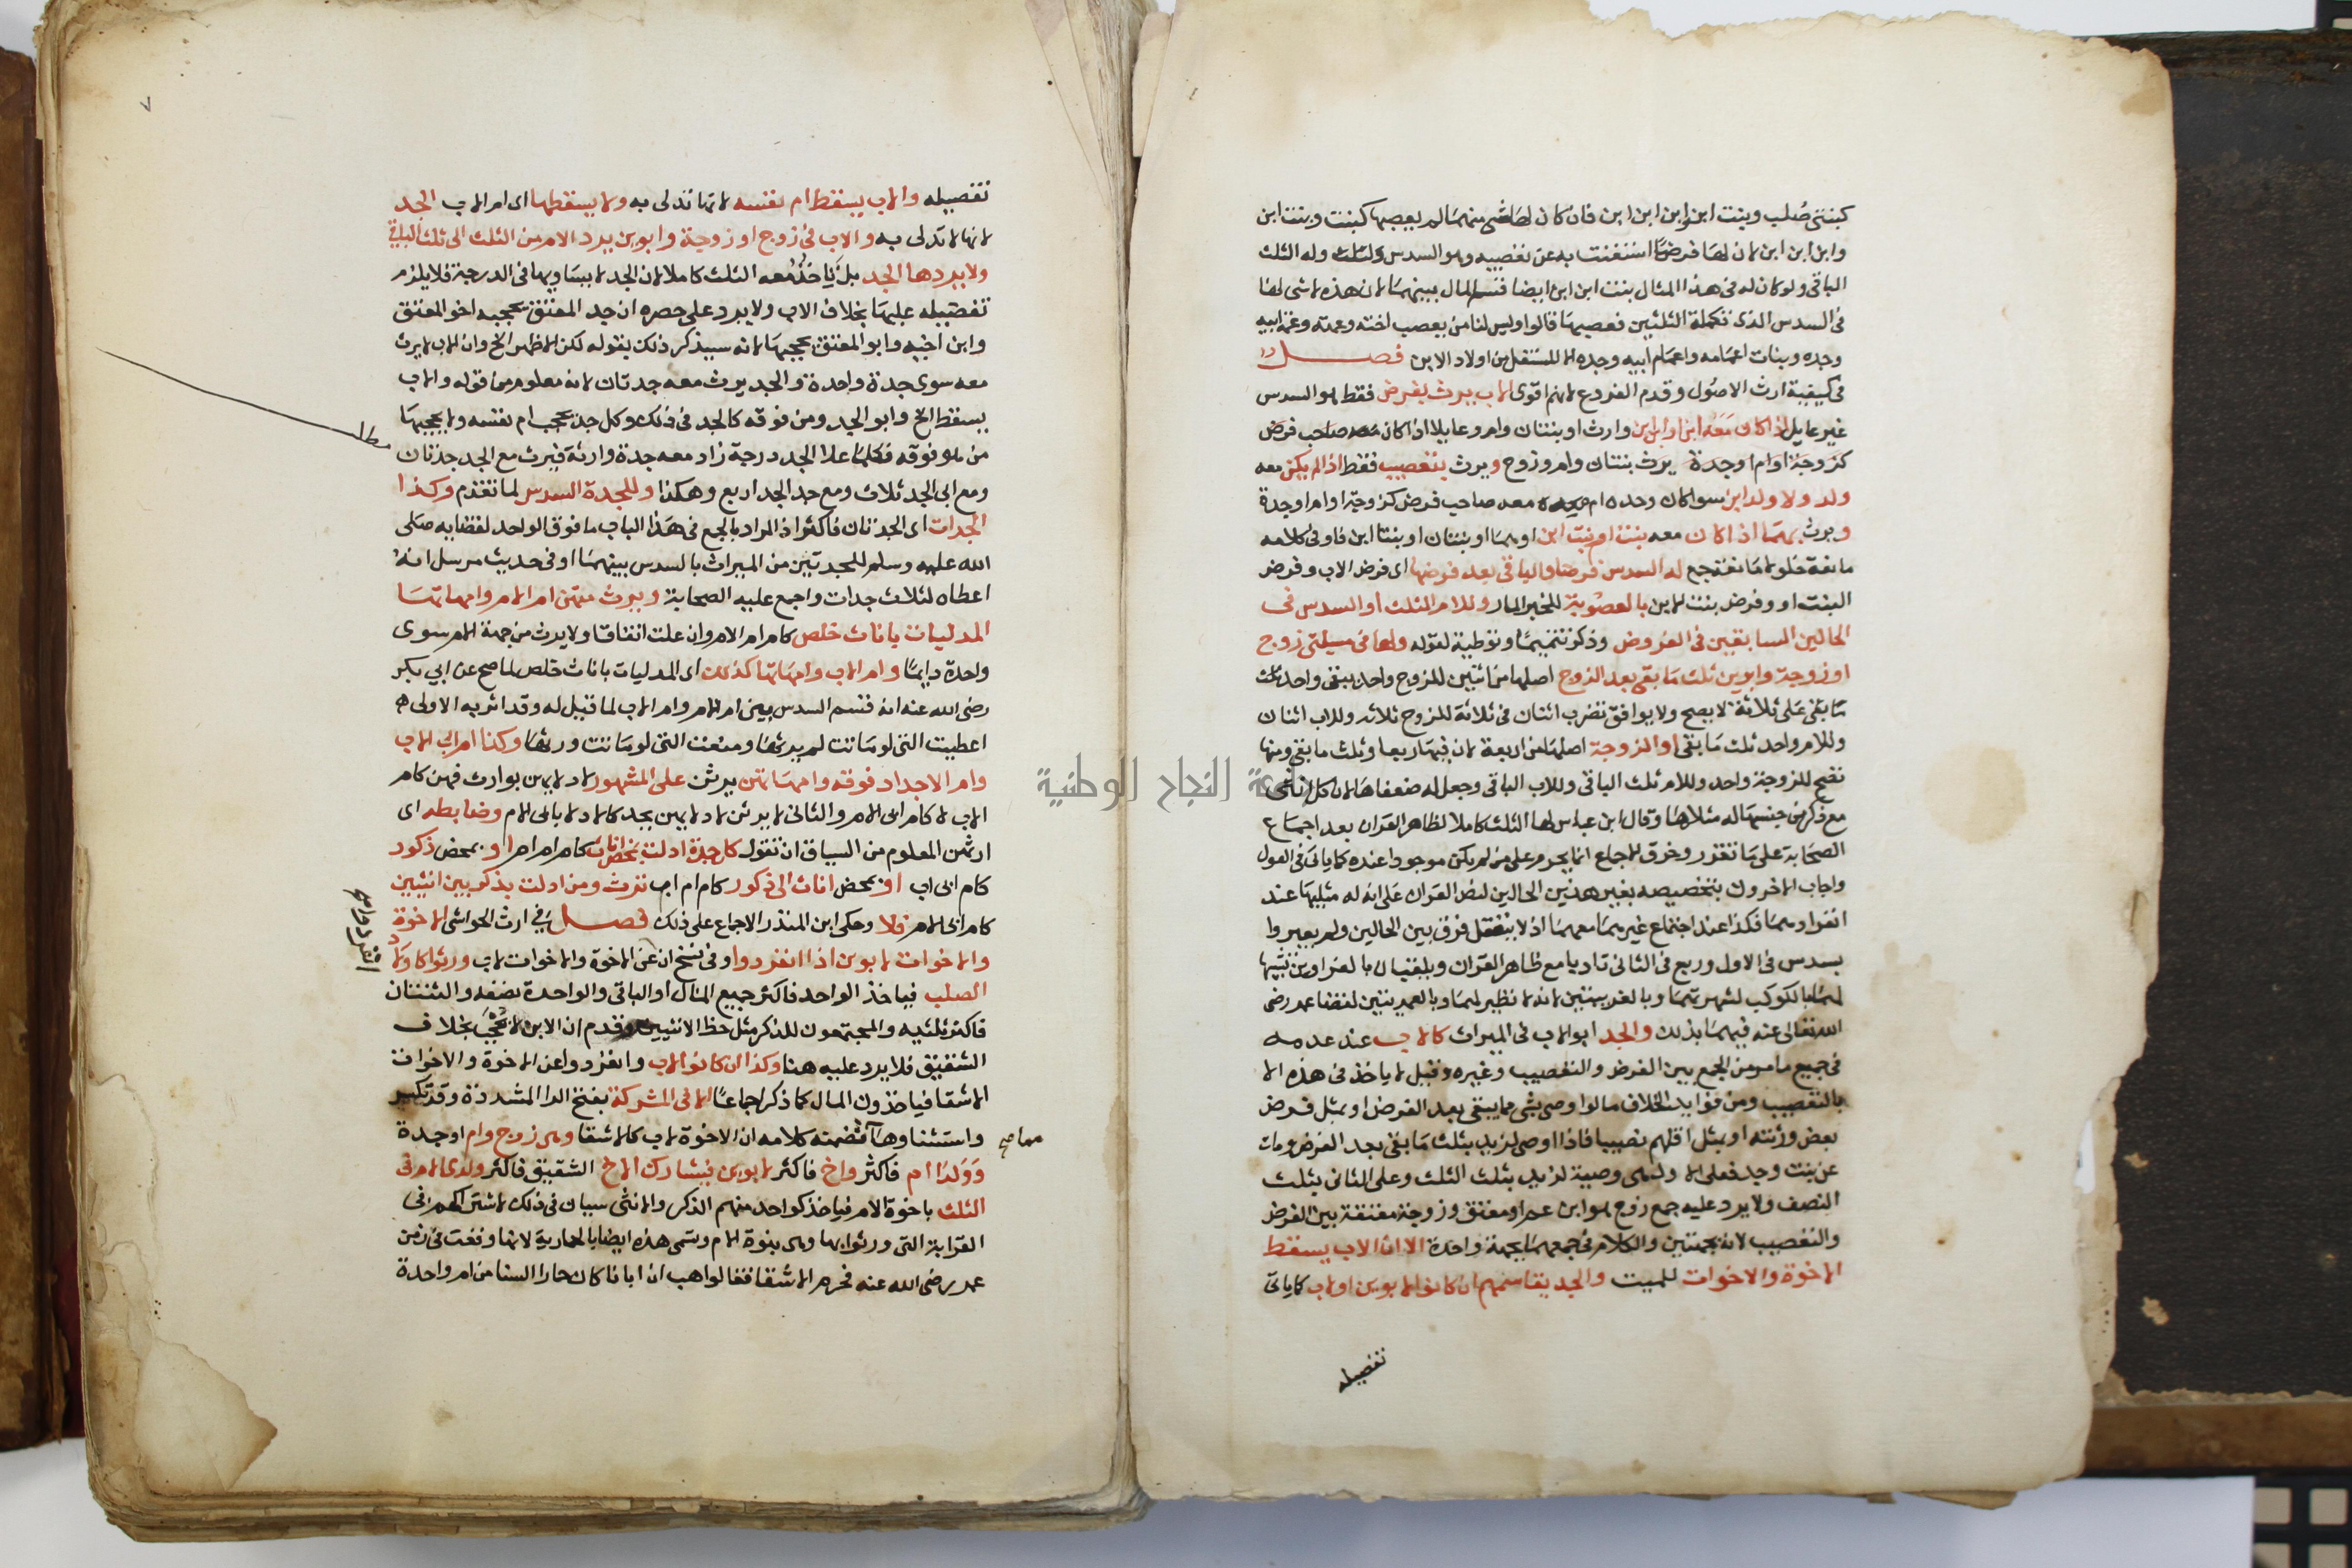 كبنتى صُلب وبنت ابن وابن ابن ابن فان كان لها شى منهما لم يعصبها كبنت وبنت ابن
وابن ابن ابن لان لها فرضا استغنت به عن تعصيبه وهو السدس وله الثلث
الباقى ولو كان له فى هذا المثال بنت ابن ابن ايضا قسم المال بينهما لان هذه لا شى لها
فى السدس الذى تكملة الثلثين فعصبها قالوا وليس لنا من يعصب اخته وعمته وعمة ابيه
وجده وبنات اعمامه واعمام ابيه وجده الا المستفل من اولاد الابن فصل
فى كيفية ارث الاصول وقدم الفروع لانهم اقوى الاب يرث بفرض فقط هو السدس
غير عايل اذا كان معه ابن او ابن ابن وارث او بنتان وام وعايلا اذا كان معه صاحب فرض
كزوجة او ام او جدة يرث بنتان وام وزوج ويرث بتعصيب فقط اذا لم يكن معه
ولد ولا ولد ابن سوا كان وحده ام معه صاحب فرض كزوجة او ام او جدة
ويرث بهما اذا كان معه بنت او بنت ابن او هما او بنتان او بنتا ابن فاو فى كلامه
مانعة خلو لا مانعة جمع له السدس فرضا والباقى بعد فرضها اى فرض الاب وفرض
البنت او وفرض بنت الابن بالعصوبة للخبر المار وللام الثلث او السدس فى
الحالين السابقين فى الفروض وذكر تتميما وتوطية لقوله ولها فى مسيلتى زوج
او زوجة وابوين ثلث ما بقى بعد الزوج اصلها من اثنين للزوج واحد يبقى واحد ثلث
ما بقى على ثلاثة لا يصح ولا يوافق تضرب اثنان فى ثلاثة للزوج ثلاثه وللاب اثنان
وللام واحد ثلث ما بقى او الزوجة اصلها من اربعة لان فيها ربعا وثلث ما بقى ومنها
تصح للزوجة واحد وللام ثلث الباقى وللاب الباقى وجعل له ضعفاها لان كل انثى
مع ذكر من جنسها له مثلاها وقال ابن عباس لها الثلث كاملا لظاهر القران بعد اجماع
الصحابة على ما تقرر وخرق الاجماع انما يحرم على من لم يكن موجودا عنده كما ياتى فى العول
واجاب الاخرون بتخصيصه بغير هذين الحالين لنص القران على انه له مثليها عند
انفرادهما فكذا عند اجتماع غيرهما معهما اذ لا يتعقل فرق بين الحالين ولم يعبروا
بسدس فى الاول وربع فى الثانى تاديا مع ظاهر القران ويلقبان بالغراوين تشبيها
لهما بالكوكب لشهرتهما وبالغريبتين لانه لا نظير لهما وبالعمريتين لقضا عمر رضى
الله تعالى عنه فيهما بذلك والجد ابو الاب فى الميراث كالاب عند عدمه
فى جميع ما مر من الجمع بين الفرض والتعصيب وغيره وقيل لا ياخذ فى هذه الا
بالتعصيب ومن فوايد الخلاف ما لو اوصى بشى مما يبقى بعد الفرض او بمثل فرض
بعض ورثته او بمثل اقلهم نصيبا فاذا اوصى لزيد بثلث ما بقى بعد الفرض ومات
عن بنت وجد فعلى الاول هى وصية لزيد بثلث الثلث وعلى الثانى بثلث
النصف ولا يرد عليه جمع زوج هو ابن عم او معتق وزوجة معتقة بين الفرض
والتعصيب لانه بجهتين والكلام فى جمعهما بجهة واحدة الا ان الاب يسقط
الاخوة والاخوات للميت والجد يقاسمهم ان كانوا لابوين او لاب كما ياتى
تفصيله
٧
تفصيله والاب يسقط ام نفسه لانها تدلى به ولا يسقطها اى ام الاب الجد
لانها لا تدلى به والاب فى زوج او زوجة وابوين يرد الام من الثلث الى ثلث الباقى
ولا يردها الجد بل ياخذ معه الثلث كاملا لان الجد لا يساويها فى الدرجة فلا يلزم
تفضيله عليها بخلاف الاب ولا يرد على حصره ان جد المعتق يحجبه اخو المعتق
وابن اخيه وابو المعتق يحجبهما لانه سيذكر ذلك بقوله لكن الاظهر الخ وان الاب لا يرث
معه سوى جدة واحدة والجد يرث معه جدتان لانه معلوم من قوله والاب
يسقط الخ وابو الجد ومن فوقه كالجد فى ذلك وكل جد يحجب ام نفسه ولا يحجبها
من هو فوقه فكلما علا الجد درجة زاد معه جدة وارثة فيرث مع الجد جدتان
ومع ابى الجد ثلاث ومع جد الجد اربع وهكذا وللجدة السدس لما تقدم وكذا
الجدات اى الجدتان فاكثر اذ المراد بالجمع فى هذا الباب ما فوق الواحد لقضايه صلى
الله عليه وسلم للجدتين من الميراث بالسدس بينهما وفى حديث مرسل انه
اعطاه لثلاث جدات واجمع عليه الصحابة ويرث منهن ام الام وامهاتها
المدليات باناث خلص كام ام الام وان علت اتفاقا ولا يرث من جهة الام سوى
واحدة دايما وام الاب وامهاتها كذلك اى المدليات باناث خلص لما صح عن ابي بكر
رضى الله عنه انه قسم السدس بين ام الام وام الاب لما قيل له وقد اثر به الاولى
اعطيت التى لو ماتت لم يرثها ومنعت التى لو ماتت ورثها وكذا ام ابى الاب
وام الاجداد فوقه وامهاتهن يرثن على المشهور لادلايهن بوارث فهن كام
الاب لا كام ابى الام والثانى لا يرثن لادلايهن بجد كالادلا بابى الام وضابطه اى
ارثهن المعلوم من السياق ان تقول كل جدة ادلت بمحض اناث كام ام ام او بمحض ذكور
كام ابى اب او بمحض اناث الى ذكور كام ام اب ترث ومن ادلت بذكر بين انثيين
كام ابى الام فلا وحكى ابن المنذر الاجماع على ذلك فصل فى ارث الحواشى الاخوة
والاخوات لابوين اذا انفردوا وفى نسخ ان عن الاخوة والاخوات لاب ورثوا كاولاد
الصلب فياخذ الواحد فاكثر جميع المال او الباقى والواحدة نصفه والثنتان
فاكثر ثلثيه والمجتمعون للذكر مثل حظ الانثيين وقدم ان الابن لا يحجب بخلاف
الشقيق فلا يرد عليه هنا وكذا ان كانوا لاب وانفردوا عن الاخوة والاخوات
الاشقا فياخذون المال كما ذكر اجماعا الا فى المشركة بفتح الرا المشددة وقد تكسر
واستثناوها مما تضمنه كلامه ان الاخوة لاب كالاشقا وهى زوج وام او جدة
وولدا ام فاكثر واخ فاكثر لابوين فيشارك الاخ الشقيق فاكثر ولدى الام فى
الثلث باخوة الام فياخذ كواحد منهم الذكر والانثى سيان فى ذلك لاشتراكهم فى
القرابة التى ورثوا بها وهى بنوة الام وتسمى هذه ايضا بالحمارية لانها وقعت فى زمن
عمر رضى الله عنه فحرم الاشقا فقالوا هب ان ابانا كان حمارا السنا من ام واحدة